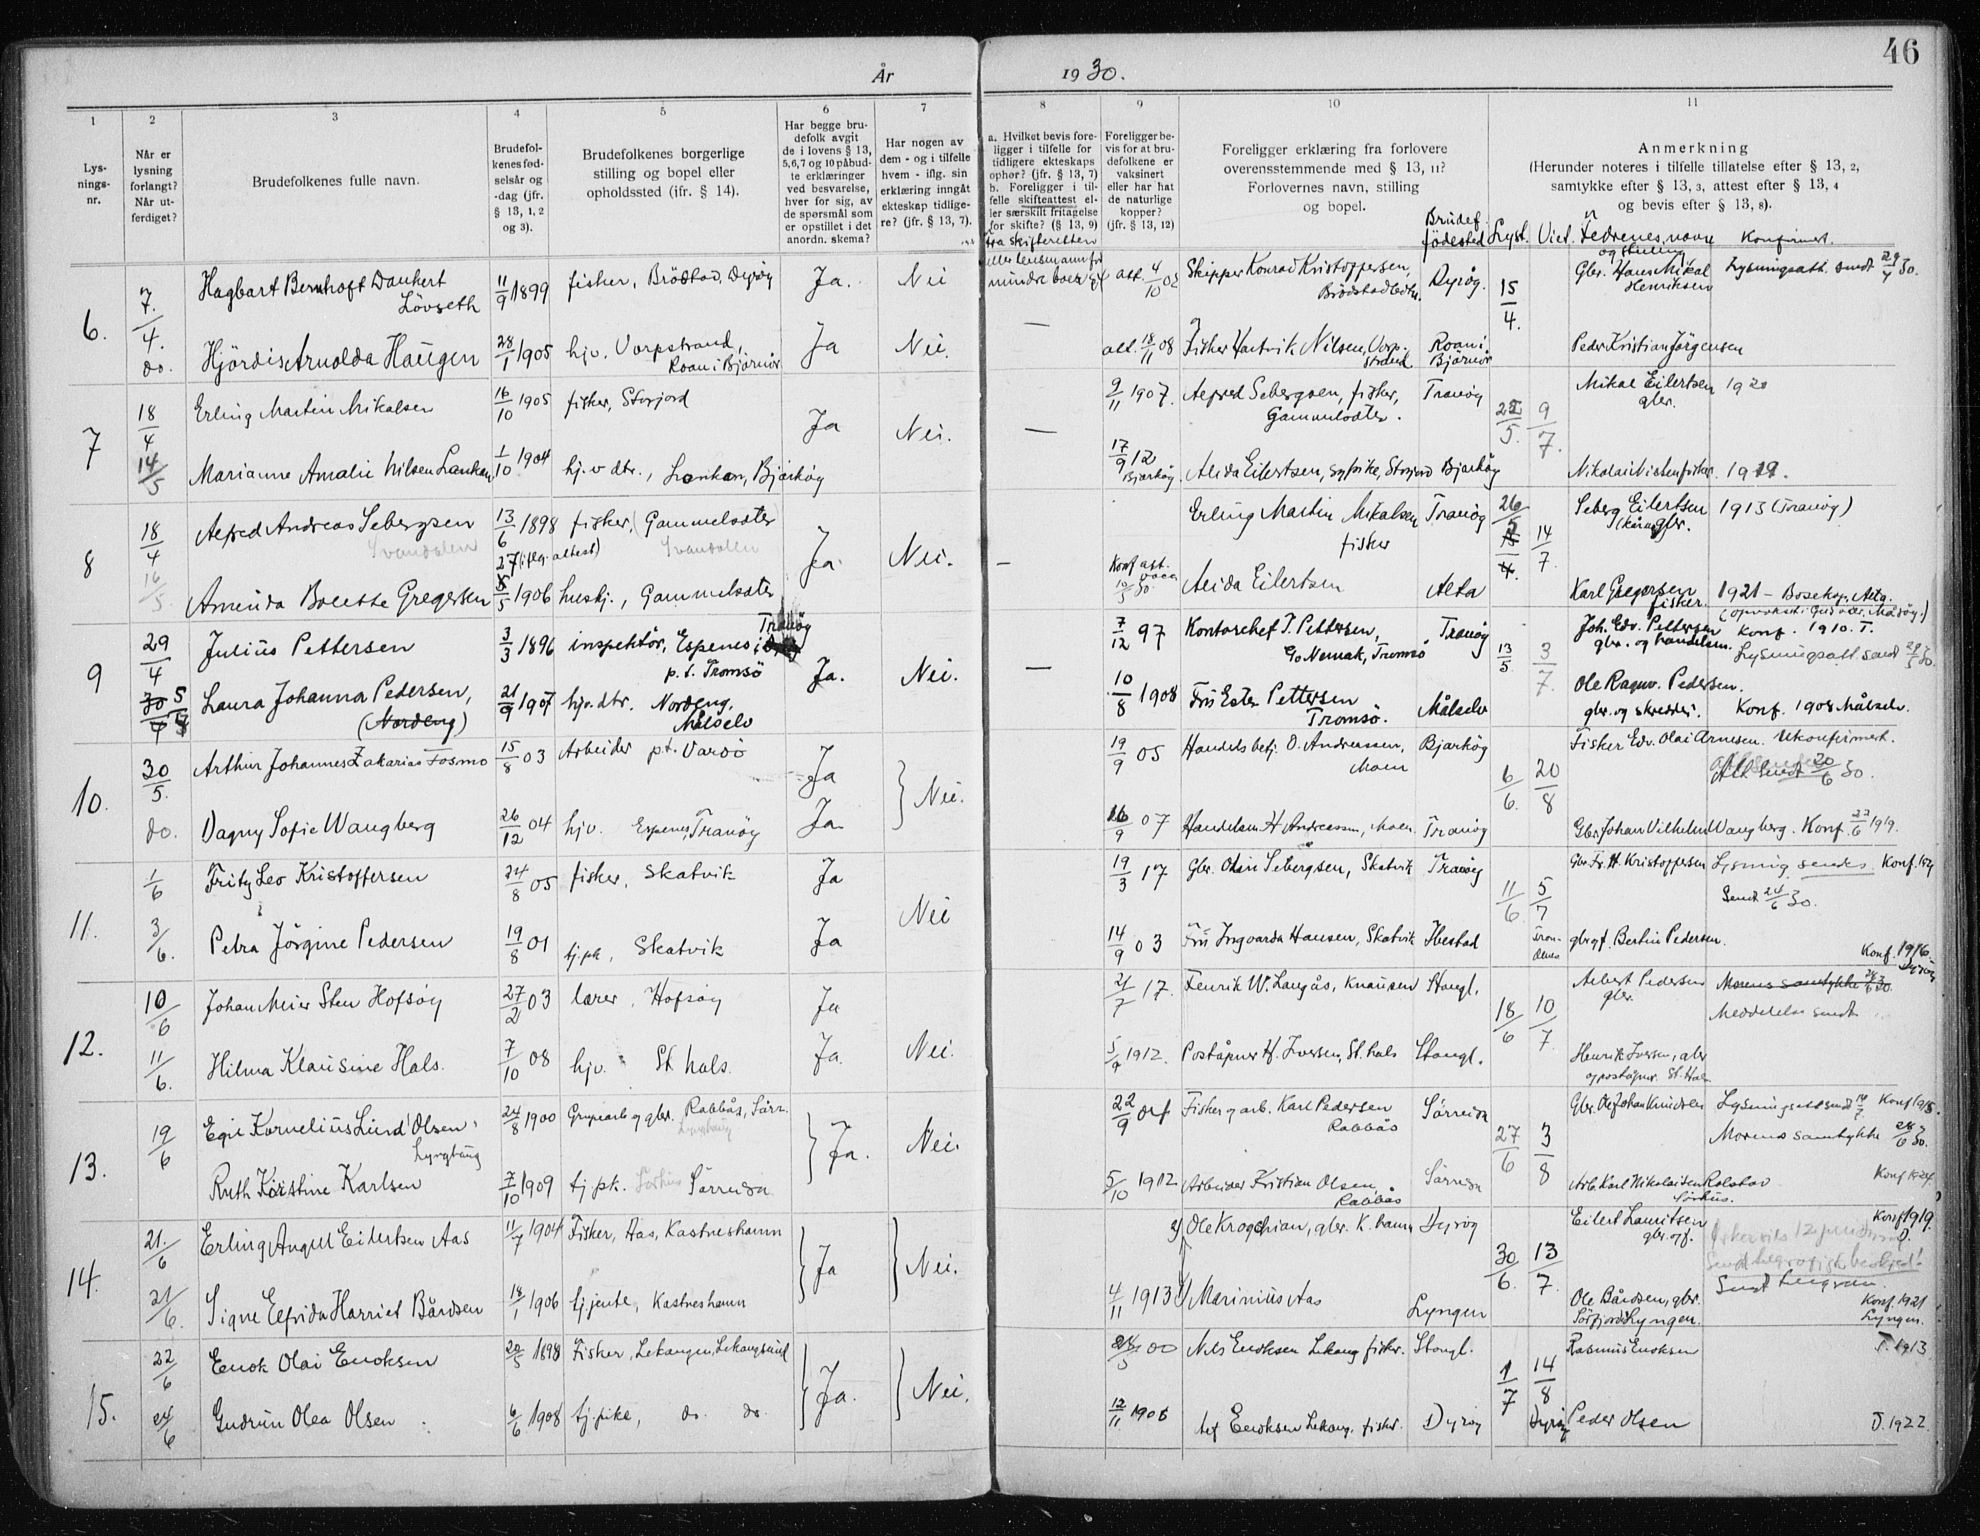 46
År 1930.
1 2 3 4 5 6 7 8 9 10 11
Lys-
nings-
nr.
Når er
lysning
forlangt?
Når ut-
ferdiget?
Brudefolkenes fulle navn.
Brudefol-
kenes fød-
selsår og
-dag (jfr.
§ 13, 1, 2
og 3).
Brudefolkenes borgerlige
stilling og bopel eller
opholdssted (ifr. § 14).
Har begge bru-
defolk avgit
de i lovens § 13,
5,6,7 og 10 påbud-
te erklæringer
ved besvarelse,
hver for sig, av
de spørsmål som
er opstillet i det
anordn. skema?
Har nogen av
dem - og i tilfelle
hvem - iflg. sin
erklæring inngåt
ekteskap tidlige-
re? (jfr. § 13, 7).
a. Hvilket bevis fore-
ligger i tilfelle for
tidligere ekteskaps
ophør? (jfr. § 13, 7)
b. Foreligger i til-
felle skifteattest el-
ler særskilt fritagelse
for skifte? (§ 13, 9)
fra skifteretten
eller lensmann for
mindre boer
Foreligger be-
vis for at bru-
defolkene er
vaksinert
eller har hat
de naturlige
kopper?
(jfr. § 13, 12)
Foreligger erklæring fra forlovere
overensstemmende med § 13, 11?
Forlovernes navn, stilling
og bopel.
Brudef.
fødested
Anmerkning
(Herunder noteres i tilfelle tillatelse efter § 13, 2,
samtykke efter § 13, 3, attest efter § 13, 4
og bevis efter § 13, 8).
Lyst. Viet. Fedrenes navn
og stilling
Konfirmert.
6. 7/4. Hagbart Bernhoft Dankert
Lövseth
11/9 1899 fisker, Brödstad, Dyröy Ja. Nei att. 4/10 02 Skipper Konrad Kristoffersen,
Brödstadbotn. Dyröy. 15/4. Gbr. Hans Mikal
Henriksen Lysningsatt. sendt 29/4 30.
do. Hjördis Arnolda Haugen 28/1 1905 hjv. Vorpstrand,
Roan i Bjørnör Ja Nei. — att. 18/11 08 Fisker Hartvik Nilsen, Vorp-
strand Roan i
Bjørnör Peder Kristian Jörgensen
7 18/4 Erling Martin Mikalsen 16/10 1905 fisker, Storjord Ja Nei. — 9/11 1907. Alfred Sebergsen, fisker,
Gammelsæter. Tranöy 22/5. 9/7. Mikal Eilertsen
gbr. 1920
14/5 Marianne Amalie Nilsen Lankan, 1/10 1904 hj. v dtr., Lankan, Bjarköy 17/9 12
Bjarköy Alida Eilertsen, sypike, Storjord Bjarköy Nikolai Nilsen fisker. 1919.
8 18/4 Alfred Andreas Sebergsen
Svandalen
13/6 1898 fisker, Gammelsæter
(iflg. attest) Svandalen Ja. Nei. — Erling Martin Mikalsen
fisker Tranöy 26/5 14/7. Seberg Eilertsen
gbr. 1913 (Tranöy)
16/5. Amanda Bolette Gregersen 5/5 1906 hushj., Gammelsæter Konf att.
10/5 30. Alida Eilertsen Alta Karl Gregersen
fisker. 1921 - Bosekop, Alta.
9 29/4 Julius Pettersen 3/3 1896 inspektör, Espenes i Tranöy
p.t. Tromsö Ja. Nei. — 7/12 97 Kontorchef T. Pettersen,
Tromsö Tranöy 13/5 3/7. Joh. Edv. Pettersen
gbr. og handelsm. Konf. 1910. T.
Lysningsatt sendt
Laura Johanna Pedersen,
(Nordeng) 21/9 1907 hjv. dtr. Nordeng,
Målselv 10/8 1908 Frü Ester Pettersen
Tromsö. Målselv Ole Ragnv. Pedersen.
gbr. og skredder. Konf. 1908 Målselv.
10. 30/5. Arthur Johannes Zakarias Fosmo 15/8 03 Arbeider p.t. Vardö Ja Nei. 19/9 05 Handelsbetj. O. Andreassen,
Moen Bjarköy 6/6. 20/8 Fisker Edv. Olai Arnesen. Ukonfirmert.
Att. sendt 20/6 30.
do. Dagny Sofie Wangberg 26/12 04 hjv. Espenes Tranöy Ja 26/9 07 Handelsm. H Andreassen, Moen Tranöy Gbr. Johan Vilhelm Wangberg. Konf. 22/6 1919.
11. 1/6 Fritz Leo Kristoffersen 24/8 05 fisker, Skatvik Ja Nei 19/3 17 Gbr. Olai Sebergsen, Skatvik Tranöy 11/6. 5/7 Gbr. Fr. H. Kristoffersen Lysning sendes
Sendt 24/6 30.
3/6. Petra Jörgine Pedersen 19/8 01 tj.pk, Skatvik Ja 14/9 03 Frü Ingvarda Hansen, Skatvik Ibestad Tron-
denes gbr og f. Bertin Pedersen. Konf. 1916.
12. 10/6 Johan Meier Sten Hofsöy 27/2 03 lærer, Hofsöy Ja Nei. 2/7 17. Henrik W. Langås, Knausen Stongl. 18/6 10/7. Albert Pedersen
gbr. Morens samtykke
Meddelelse sendt
11/6. Hilma Klausine Hals. 7/10 08 hjv. St hals. Ja. 5/9 1912. Poståpner H. Iversen, St. hals Stongl. Henrik Iversen, gbr
og poståpner. St. Hals
13. 19/6 Egil Kornelius Lund Olsen.
Lyngbaug
24/8 1900 Grupearb og gbr. Rabbås, Sörr. Ja. Nei. 22/9 04 Fisker og arb. Karl Pedersen
Rabbås Sörreisa 27/6 3/8 Gbr. Ole Johan Knudsen Lysningsatt sendt
Morens samtykke 28/6 30.
Ruth Kristine Karlsen 7/10 1909 tj pk. Sörreisa 5/10 1912 Arbeider Kristian Olsen,
Rabbås Sörreisa Arb. Karl Nikolaisen Konf 1924.
14. 21./6 Erling Angel Eilertsen Aas 11/7 1904 Fisker, Aas, Kastneshamn Ja Nei. Ole Krogchian, gbr. K. hamn Dyröy 30/6. 13/7 Eilert Lauritsen
gbr. og f. Konf 1919.
21/6. Signe Elfrida Harriet Bårdsen 18/1 1906 tjjente, Kastneshamn 4/11 1913 Marinius Aas Lyngen Ole Bårdsen, gbr.
Sörfjord Lyngen. Konf. 1921
Lyngen.
15. 22/6 Enok Olai Enoksen 20/5 1898 Fisker, Lekangen, Lekangsund Ja. Nei. Nils Enoksen Lekang fisker. Stongl. 1/7 14/8 Rasmus Enoksen T. 1913
24/6 Gudrun Olea Olsen 6/6 1908 tj pike, do. do. 12/11 1908 Alf Enoksen Lekang, fisker. Dyröy Dyröy Peder Olsen T. 1922